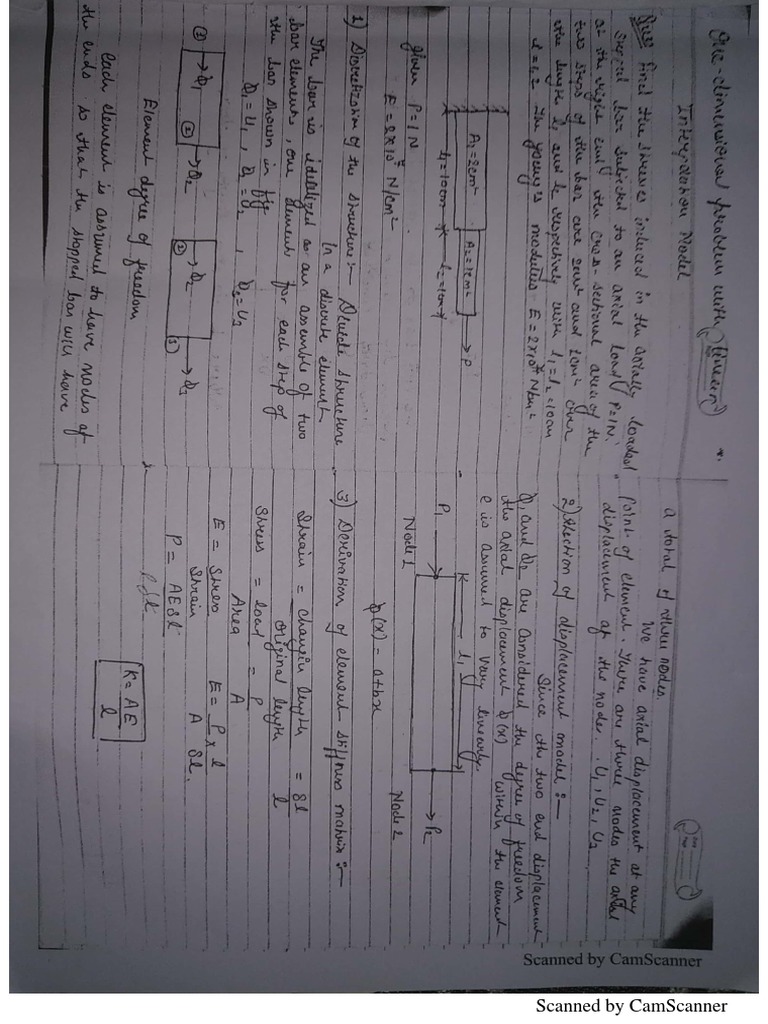 One-dimensional problem with linear
Interpolation Model
Ques Find the stresses induced in the axially loaded
stepped bar subjected to an axial load P=1N.
at the right end, the cross-sectional area of the
two steps of the bar are 2cm² and 1cm² over
the length l1 and l2 respectively with l1=l2=10cm
The young's modulus E=2x10⁷ N/cm²
A1=2cm²
A2=1cm²
P
l1=10cm
given P=1N
E=2x10⁷ N/cm²
1) Discretization of the structure:- Divide structure
in a discrete element
The bar is idealized as an assemble of two
bar elements, one element for each step of
the bar shown in fig
Φ1=U1, Φ2=U2, Φ3=U3
Φ1
Φ2
Φ2
Φ3
Element degree of freedom
each element is assumed to have nodes at
the ends so that the stepped bar will have
a total of three nodes.
We have axial displacement at any
point of element. There are three nodes the axial
displacement at the nodes. U1, U2, U3
2) Selection of displacement model:-
Since the two end displacement
Φ1 and Φ2 are considered the degree of freedom
the axial displacement Φ(x) within the element
e is assumed to vary linearly.
P1
l1
P2
Node 1
Node 2
Φ(x) = a+bx
3) Derivation of element stiffness matrix:-
Strain = change in length / original length = δl / l
Stress = load / Area = P / A
E = Stress / Strain E = P / A x l / δl
P = AEδl / l
K = AE / l
Scanned by CamScanner
Scanned by CamScanner